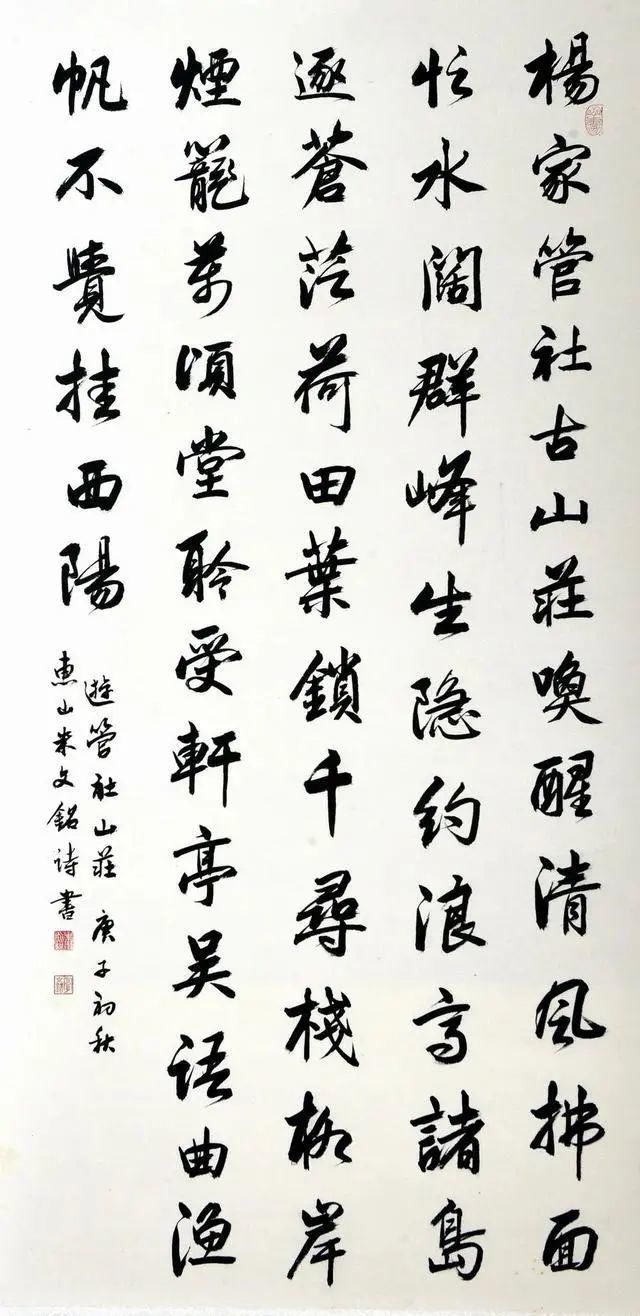 楊家管社古山莊喚醒清風拂面
忙水闊群峰生隐約浪高諸島
逐蒼茫荷田葉鎖千尋棧柳岸
煙籠萬頃堂聆受軒亭吴语曲渔
帆不覺挂西陽
遊管社山莊 庚子初秋
惠山朱文銘詩書